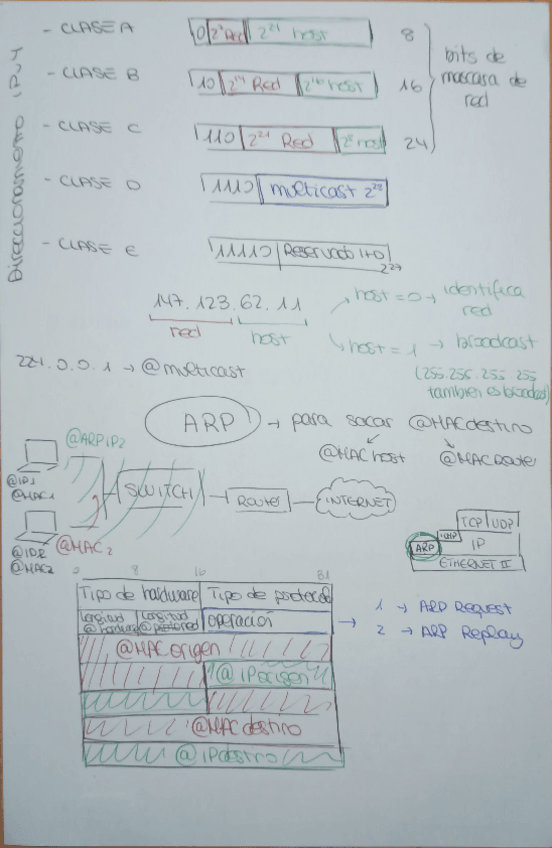 Direccionamiento IPv4
- CLASE A 0 2⁷ Red 2²⁴ host 8
- CLASE B 10 2¹⁴ Red 2¹⁶ host 16
- CLASE C 110 2²¹ Red 2⁸ host 24
bits de mascara de red
- CLASE D 1110 multicast 2²⁸
- CLASE E 11110 Reservado I+D
2²⁷
147.123.62.11
red host
host = 0 → identifica red
host = 1 → broadcast
(255.255.255.255 tambien es broadcast)
224.0.0.1 → @multicast
ARP → para sacar @MACdestino
@MAC host @MAC Router
@ARP IP2
@IP1
@MAC1
SWITCH Router INTERNET
@IP2
@MAC2
@MAC2
TCP UDP
ARP ICMP IP
ETHERNET II
0 8 16 31
Tipo de hardware Tipo de protocolo
Longitud @hardware Longitud @protocolo Operación
1 → ARP Request
2 → ARP Replay
@MAC origen
@IPorigen
@MAC destino
@IPdestino